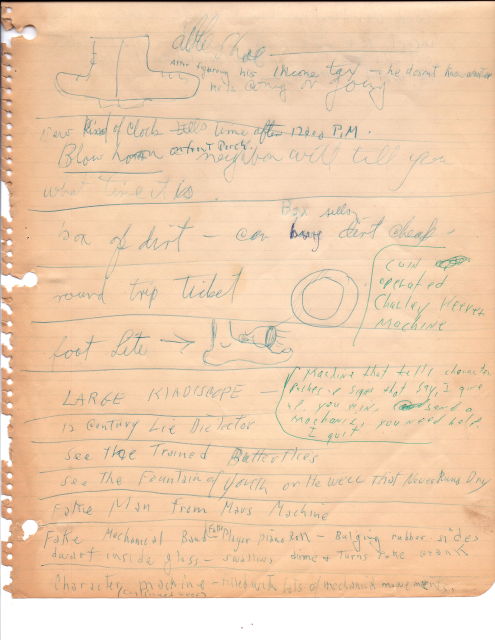 able shoe
After figuring his income tax - he doesn't know whether
he is coming or going
new kind of clock tells time after 12:00 P.M.
Blow horn on front Porch. neighbor will tell you
what time it is.
Box seller
box of dirt - can buy dirt cheap -
round trip ticket
coin
operated
Charley Horse
Machine
foot Lite →
Machine that tells character
Pushes up signs that say, I give
up, you win, send a
mechanic, you need help,
I quit
LARGE KINDISCOPE -
12 Century Lie Detector
see the Trained Butterflies
see the Fountain of youth or the well That Never Runs Dry
Fake Man from Mars Machine
Fake Mechanical Band Fake Player piano Roll - Bulging rubber sides
dwarf inside glass - swallows dime & Turns Fake crank
Character machine - filled with lots of mechanical movements,
(continued over)